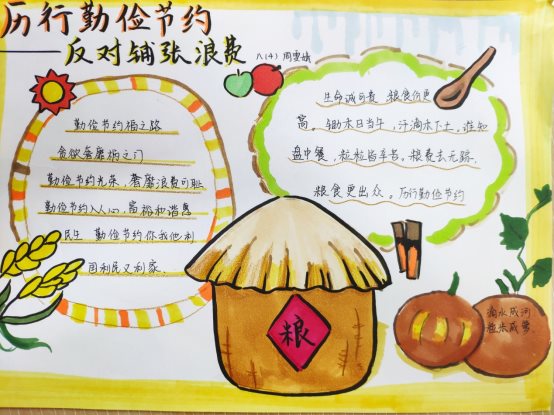 厉行勤俭节约
——反对铺张浪费
八(4) 周雯嫣
勤俭节约福之路
贪欲奢靡祸之门
勤俭节约光荣,奢靡浪费可耻
勤俭节约入人心,富裕和谐惠
民生 勤俭节约你我他利
国利民又利家.
生命诚可贵 粮食价更
高。锄禾日当午,汗滴禾下土,谁知
盘中餐,粒粒皆辛苦。粮费去无踪.
粮食更出众。厉行勤俭节约
粮
滴水成河
粒米成箩.